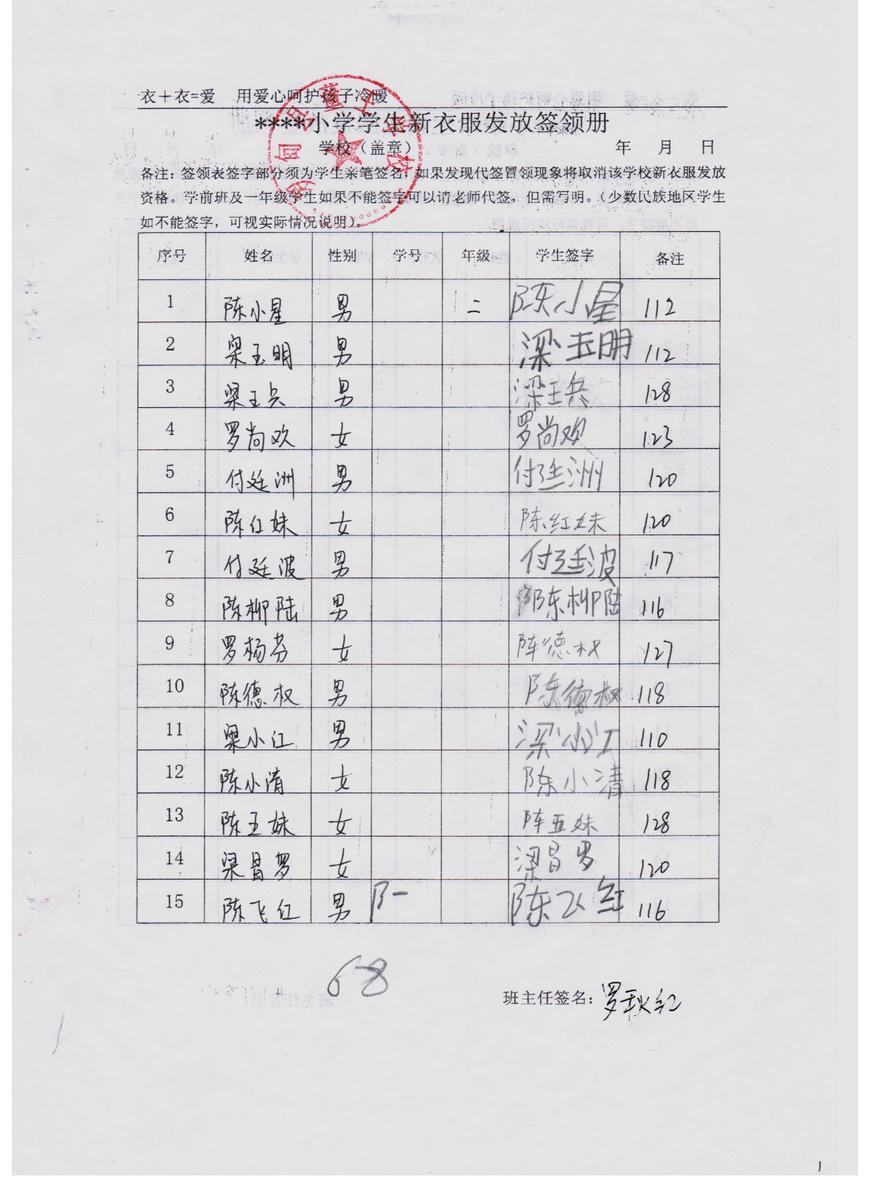 衣＋衣=爱 用爱心呵护孩子冷暖
****小学学生新衣服发放签领册
学校（盖章） 年 月 日
备注：签领表签字部分须为学生亲笔签名，如果发现代签冒领现象将取消该学校新衣服发放
资格。学前班及一年级学生如果不能签字可以请老师代签，但需写明。（少数民族地区学生
如不能签字，可视实际情况说明）。
序号 姓名 性别 学号 年级 学生签字 备注
1 陈小星 男 二 陈小星 112
2 梁玉明 男 梁玉明 112
3 梁王兵 男 梁王兵 128
4 罗尚欢 女 罗尚欢 123
5 付廷洲 男 付廷洲 120
6 陈红妹 女 陈红妹 120
7 付廷波 男 付廷波 117
8 陈柳陆 男 陈柳陆 116
9 罗杨芬 女 陈德权 127
10 陈德权 男 陈德权 118
11 梁小江 男 梁小江 110
12 陈小清 女 陈小清 118
13 陈五妹 女 陈五妹 128
14 梁昌罗 女 梁昌罗 120
15 陈飞红 男 阝一 陈飞红 116
68
班主任签名：罗秋红
1